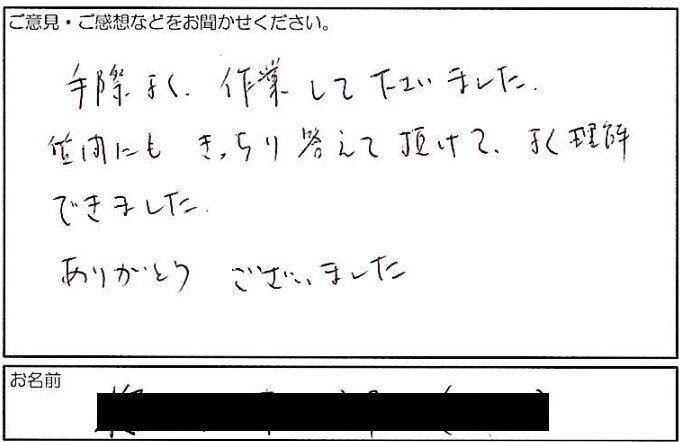 ご意見・ご感想などをお聞かせください。
手際よく、作業して下さいました。
質問にも きっちり答えて頂けて、よく理解
できました。
ありがとう ございました
お名前